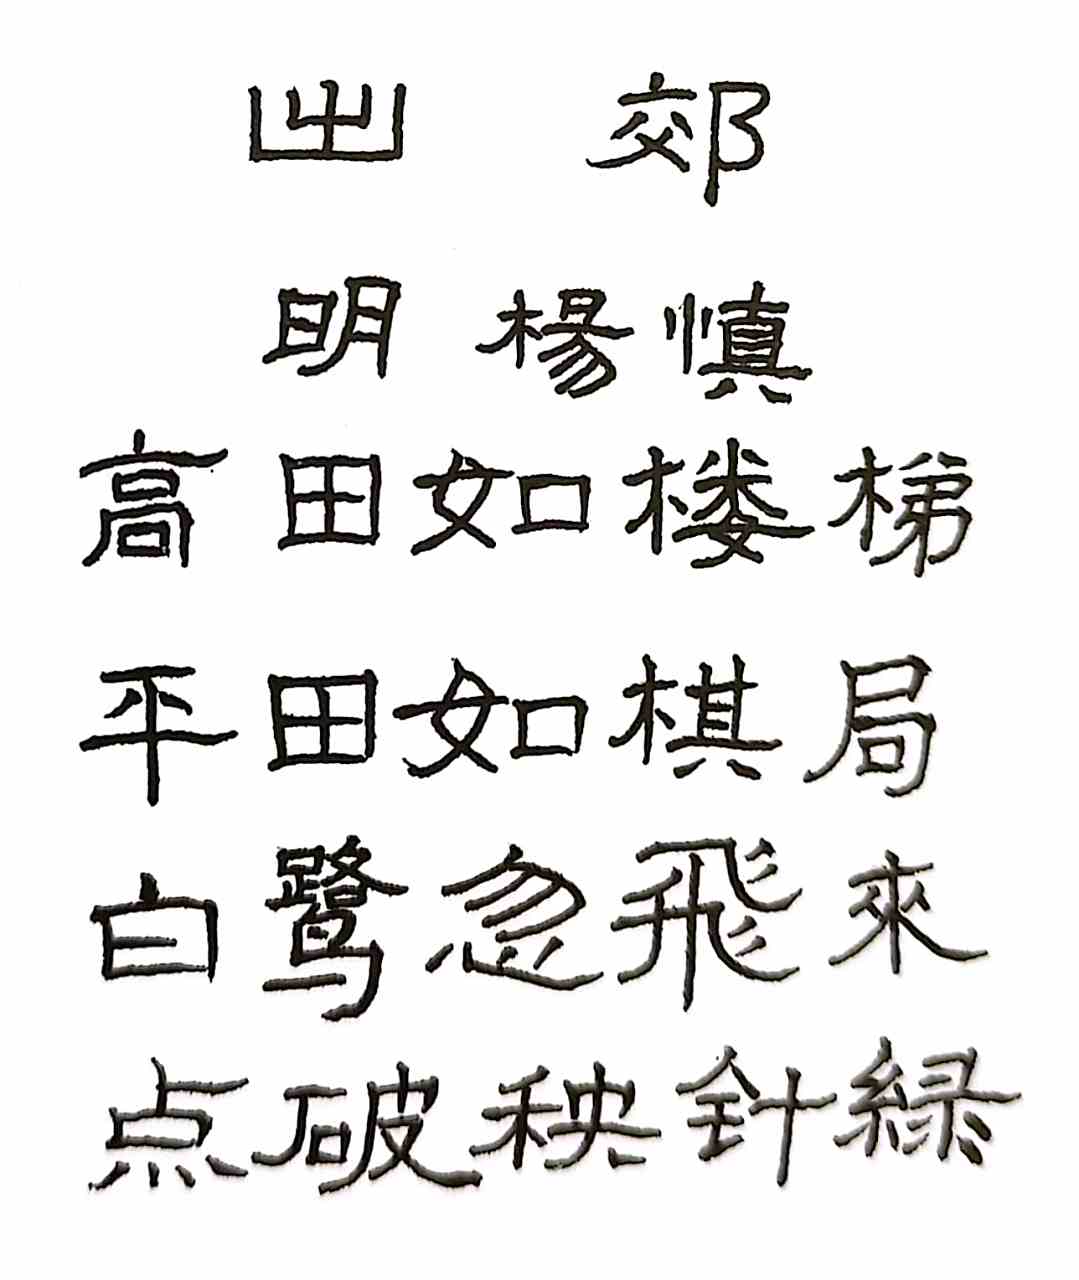 出郊
明 楊慎
高田如楼梯
平田如棋局
白鹭忽飛來
点破秧針緑